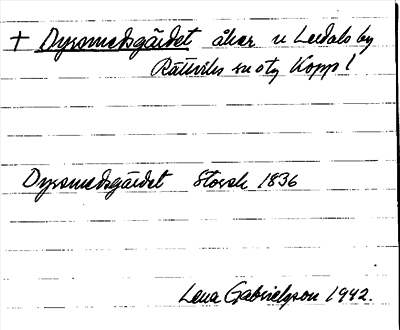 + Dyrsmedsgärdet åker u Ledals by
Rättviks sn o tg Kopp l
Dyrsmedsgärdet Storsk 1836
Lena Gabrielsson 1942.